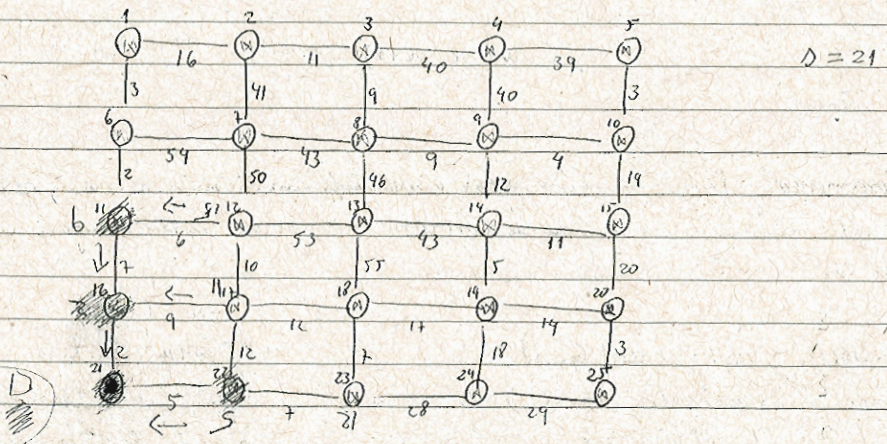 1 2 3 4 5
16 11 40 39 s = 21
3 41 9 40 3
6 7 8 9 10
54 43 9 4
2 50 46 12 19
11 12 13 14 15
6 ←
6 53 43 11
↓ 7 10 55 5 20
16 ← 17 18 19 20
9 12 17 19
↓ 2 12 7 18 3
21 22 23 24 25
D 5 7 28 29
← 5 21